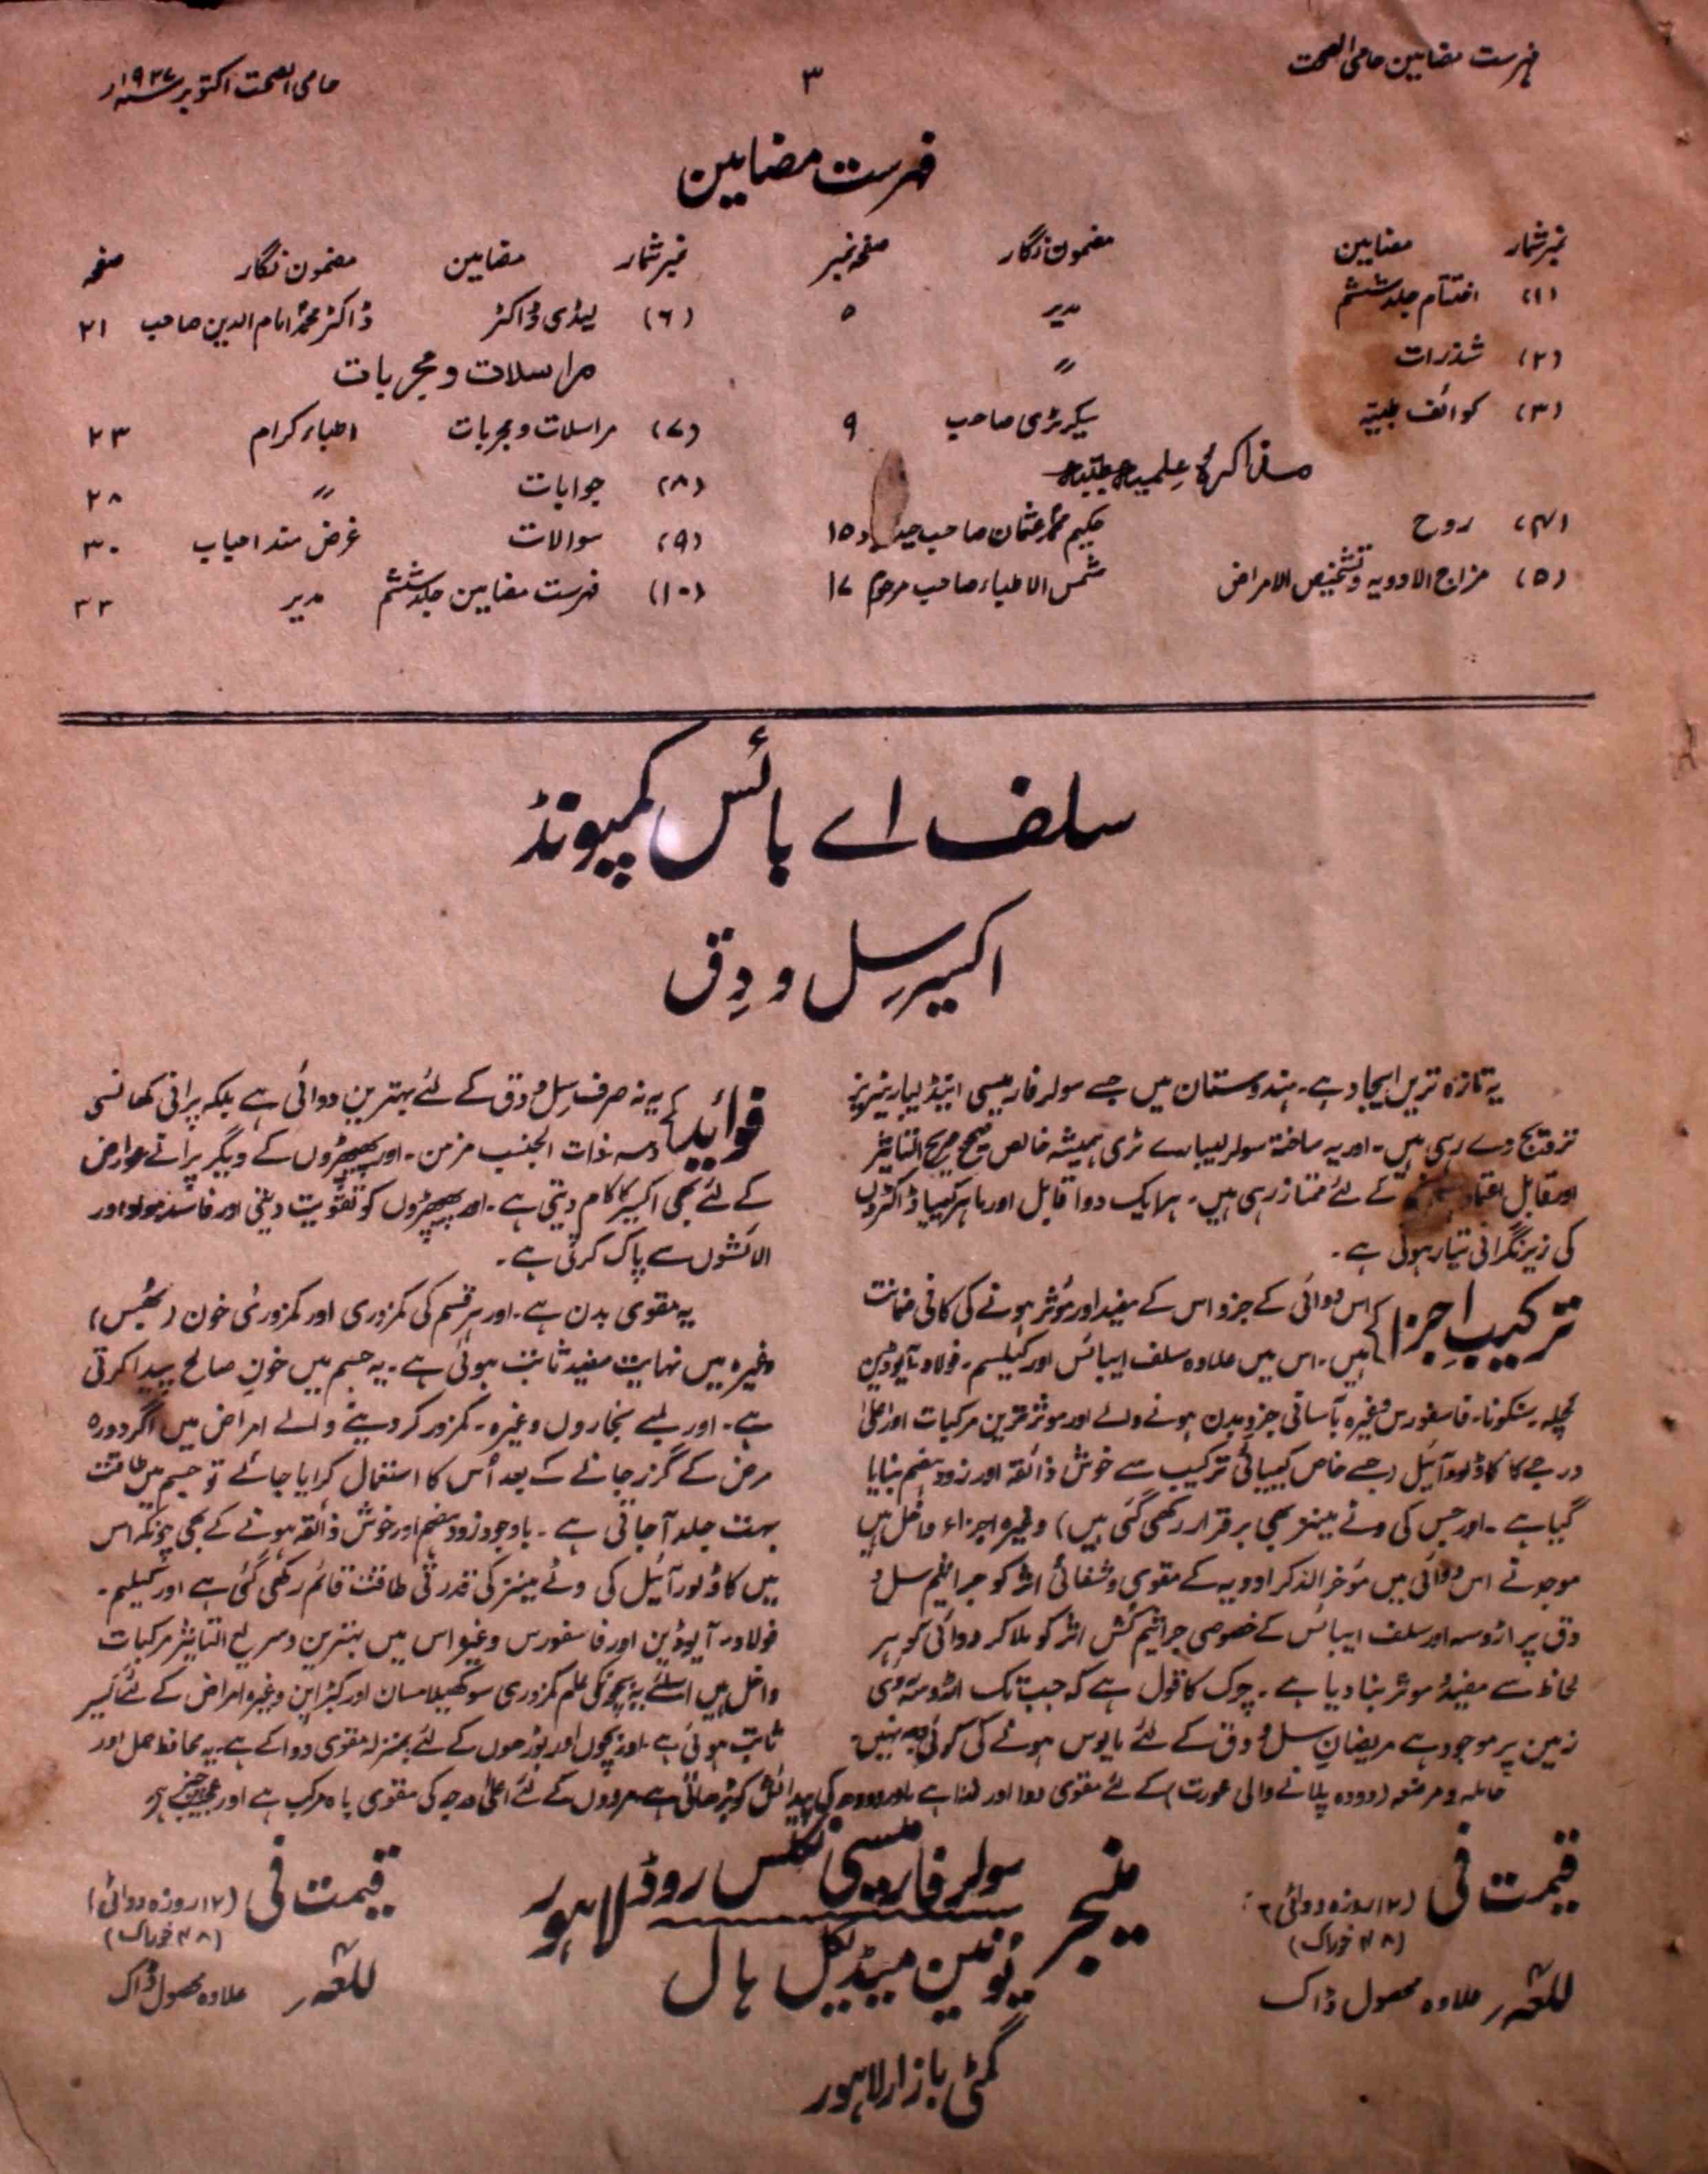 فہرست مضامین حامی الصحت
۳
حامی الصحت اکتوبر ۱۹۳۷ء
فہرست مضامین
نمبر شمار مضامین مضمون نگار صفحہ نمبر
(۱) اختتام جلد ششم مدیر ۵
(۲) شذرات 〃
(۳) کوائف طبیہ سیکرٹری صاحب ۹
مذاکرۂ علمیہ طبیہ
(۴) روح حکیم محمد عثمان صاحب ۱۵
(۵) مزاج الادویہ و تشخیص الامراض شمس الاطباء صاحب مرحوم ۱۷
نمبر شمار مضامین مضمون نگار صفحہ
(۶) لیڈی ڈاکٹر ڈاکٹر محمد امام الدین صاحب ۲۱
مراسلات و مجربات
(۷) مراسلات و مجربات اطباء کرام ۲۳
(۸) جوابات 〃 ۲۸
(۹) سوالات غرض مند احباب ۳۰
(۱۰) فہرست مضامین جلد ششم مدیر ۳۳
سلف اے بائس کمپونڈ
اکسیر سِل و دِق
یہ تازہ ترین ایجاد ہے۔ ہندوستان میں جسے سولر فارمیسی اینڈ لیبارٹیریز
ترویج دے رہی ہیں۔ اور یہ ساختۂ سولر لیبارے ٹری ہمیشہ خالص صحیح سریع التاثیر
اور قابل اعتماد کے لئے ممتاز رہی ہیں۔ ہر ایک دوا قابل اور ماہر کیمیا ڈاکٹروں
کی زیر نگرانی تیار ہوتی ہے۔
ترکیب اجزا اس دوائی کے جزو اس کے مفید اور موثر ہونے کی کافی ضمانت
ہیں۔ اس میں علاوہ سلف ایبائس اور کیلسیم۔ فولاد۔ آیوڈین
کچلہ۔ سنکونا۔ فاسفورس وغیرہ بآسانی جزو بدن ہونے والے اور موثر ترین مرکبات اور اعلیٰ
درجے کا کاڈلور آئیل (جسے خاص کیمیائی ترکیب سے خوش ذائقہ اور زود ہضم بنایا
گیا ہے۔ اور جس کی وٹے مینز بھی برقرار رکھی گئی ہیں) وغیرہ اجزاء داخل ہیں
موجد نے اس دوائی میں موخر الذکر ادویہ کے مقوی و شفائی اثر کو جراثیم سل و
دق پر اڑوسہ اور سلف ایبائس کے خصوصی جراثیم کش اثر کو ملا کر دوائی کو ہر
لحاظ سے مفید و موثر بنا دیا ہے۔ چرک کا قول ہے کہ جب تک اڑوسہ روی
زمین پر موجود ہے مریضانِ سل و دق کے لئے مایوس ہونے کی کوئی وجہ نہیں
فوائد یہ نہ صرف سِل و دق کے لئے بہترین دوائی ہے بلکہ پرانی کھانسی
دمہ۔ ذات الجنب مزمن۔ اور پھیپھڑوں کے دیگر پرانے عوارض
کے لئے بھی اکسیر کا کام دیتی ہے۔ اور پھیپھڑوں کو تقویت دیتی اور فاسد مواد اور
الائشوں سے پاک کرتی ہے۔
یہ مقوی بدن ہے۔ اور ہر قسم کی کمزوری اور کمزوریٔ خون (بھُس)
وغیرہ میں نہایت مفید ثابت ہوئی ہے۔ یہ جسم میں خونِ صالح پیدا کرتی
ہے۔ اور لمبے بخاروں وغیرہ۔ کمزور کر دینے والے امراض میں اگر دورہ
مرض کے گزر جانے کے بعد اُس کا استعمال کرایا جائے تو جسم میں طاقت
بہت جلد آ جاتی ہے۔ باوجود زود ہضم اور خوش ذائقہ ہونے کے بھی چونکہ اس
میں کاڈلور آئیل کی وٹے مینز کی قدرتی طاقت قائم رکھی گئی ہے اور کیلسیم۔
فولاد۔ آیوڈین اور فاسفورس وغیرہ اس میں بہترین و سریع التاثیر مرکبات
داخل ہیں اسلئے یہ بچوں کی عام کمزوری سوکھیا مسان اور کبڑاپن وغیرہ امراض کے لئے اکسیر
ثابت ہوئی ہے۔ اور بچوں اور بوڑھوں کے لئے بمنزلہ مقوی دوا کے ہے۔ یہ محافظ حمل اور
حاملہ و مرضعہ (دودھ پلانے والی عورت) کے لئے مقوی دوا اور غذا ہے۔ اور دودھ کی پیدائش کو بڑھاتی ہے۔ مردوں کے لئے اعلیٰ درجہ کی مقوی باہ مرکب ہے اور عجیب چیز ہے
قیمت فی (۱۲ روزہ دوائی)
(۴۸ خوراک)
للعہ ر علاوہ محصول ڈاک
منیجر سولر فارمیسی نکلس روڈ لاہور
یونین میڈیکل ہال
گمٹی بازار لاہور
قیمت فی (۱۲ روزہ دوائی)
(۴۸ خوراک)
للعہ ر علاوہ محصول ڈاک